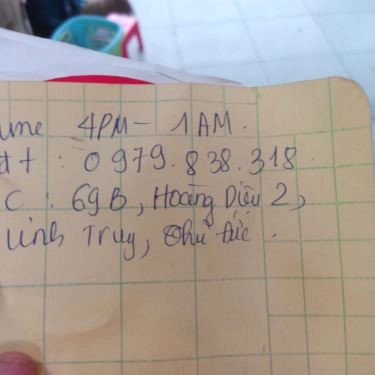 ime 4PM - 1 AM.
đt : 0979.838.318.
C : 69B, Hoàng Diệu 2,
Linh Trug, Thủ Đức.